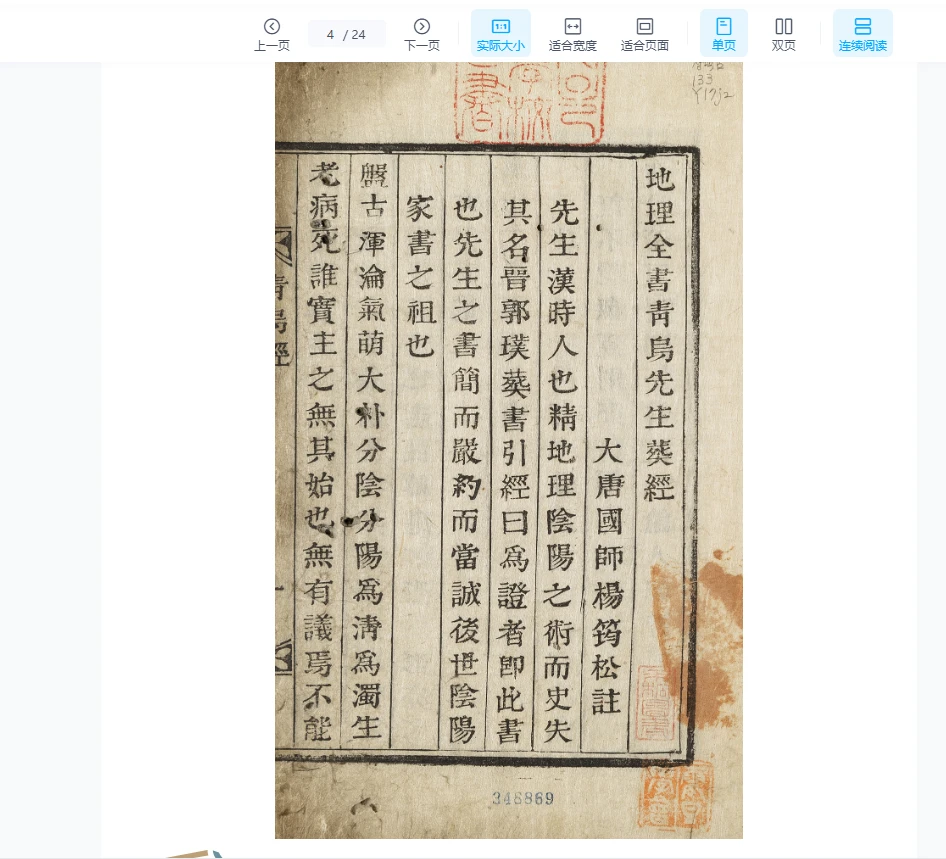 上一页
4 / 24
下一页
实际大小
适合宽度
适合页面
单页
双页
连续阅读
133
地理全書靑烏先生葬經
大唐國師楊筠松註
先生漢時人也精地理陰陽之術而史失
其名晉郭璞葬書引經曰爲證者卽此書
也先生之書簡而嚴約而當誠後世陰陽
家書之祖也
盤古渾淪氣萌大朴分陰分陽爲淸爲濁生
老病死誰實主之無其始也無有議焉不能
靑烏經
348869